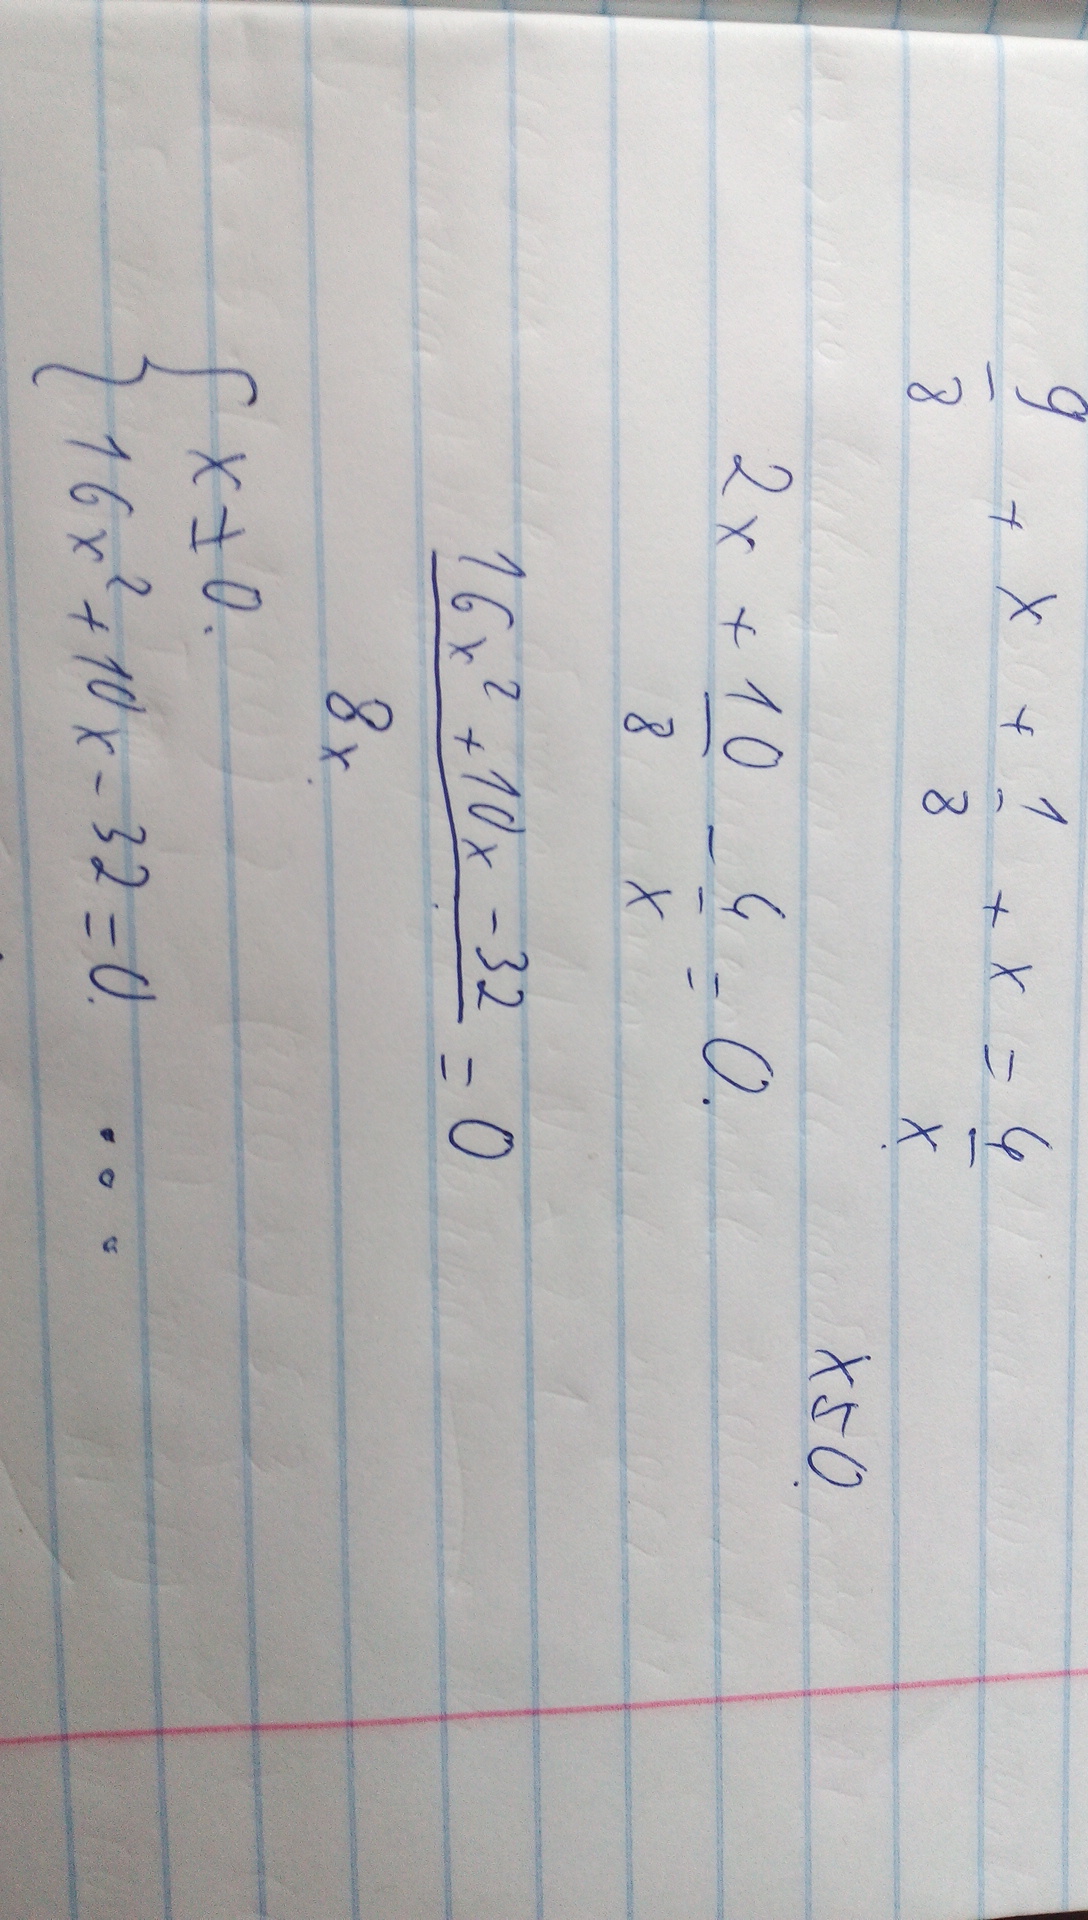 9/8 + x + 1/8 + x = 4/x
x≠0.
2x + 10/8 - 4/x = 0.
(16x² + 10x - 32)/8x = 0
{ x ≠ 0.
16x² + 10x - 32 = 0. ...